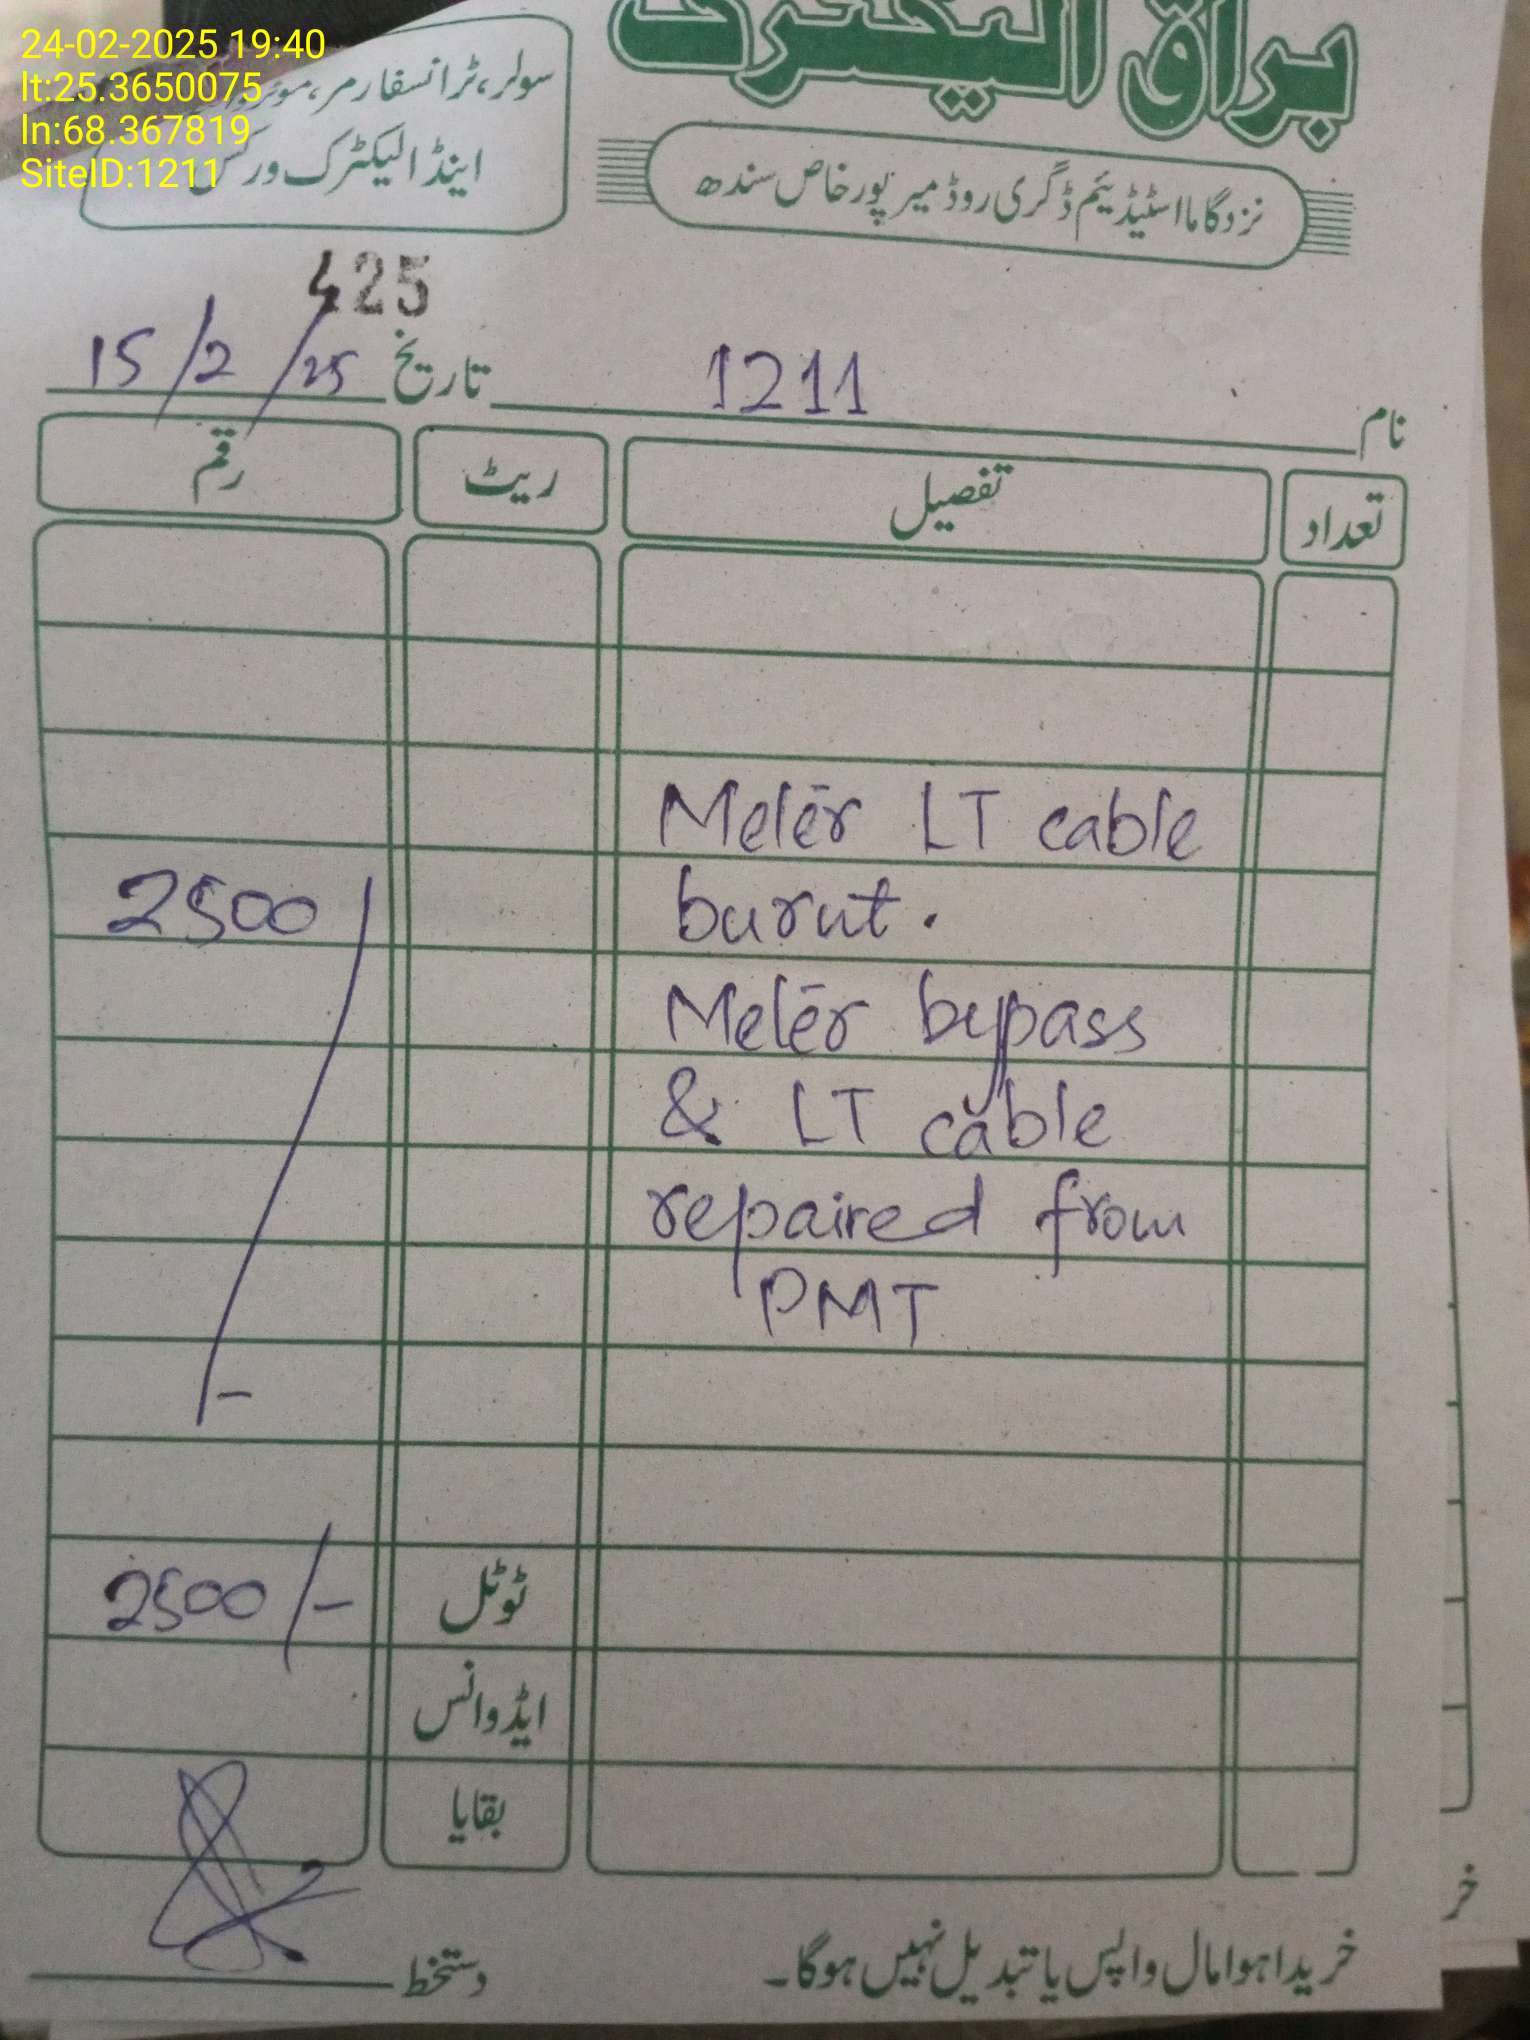 24-02-2025 19:40
lt:25.3650075
ln:68.367819
SiteID:1211
براق الیکٹرک
سولر، ٹرانسفارمر،
اینڈ الیکٹرک ورکس
نزد گاما اسٹیڈیئم ڈگری روڈ میرپورخاص سندھ
425
نام 1211 تاریخ 15/2/25
تعداد تفصیل ریٹ رقم
Meter LT cable
burnt. 2500/-
Meter bypass
& LT cable
repaired from
PMT
ٹوٹل 2500/-
ایڈوانس
بقایا
خریدا ہوا مال واپس یا تبدیل نہیں ہوگا۔
دستخط
خر